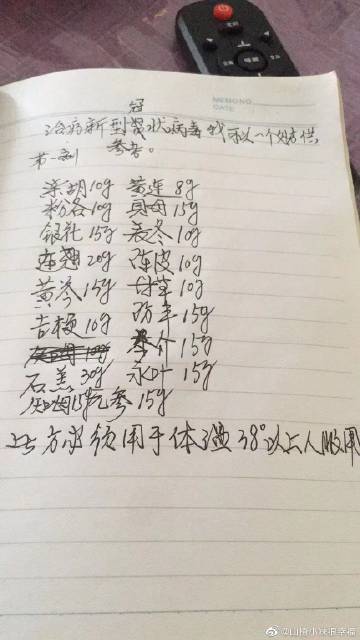 MEMO NO.
DATE
冠
治疗新型状病毒我可以一个好方供
参考。
第一剂
柴胡10g 黄连8g
粉各10g 贝母15g
银花15g 麦冬10g
连翘20g 陈皮10g
黄芩15g 甘草10g
吉梗10g 防丰15g
介15g
石羔30g 叶15g
知母15g元参15g
上方必须用于体温38°以上人服用